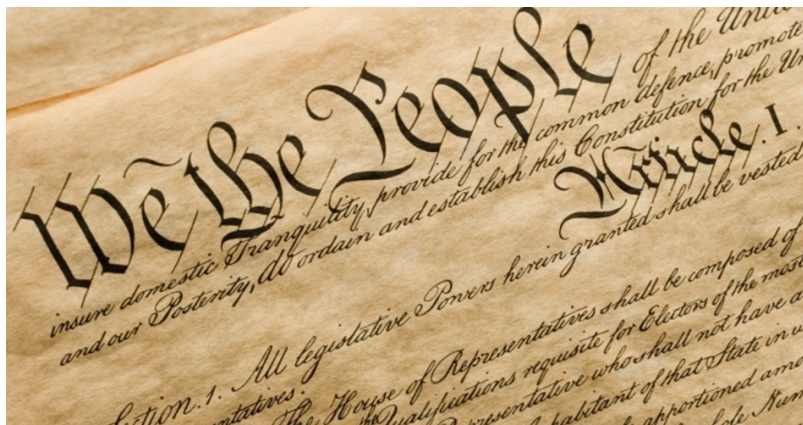 We the People of the
insure domestic Tranquility, provide for the common defence, promote
and our Posterity, do ordain and establish this Constitution for the
Article. I.
Section. 1. All legislative Powers herein granted shall be vested
The House of Representatives shall be composed of
Qualifications requisite for Electors of the most
who shall not have
of that State in
apportioned